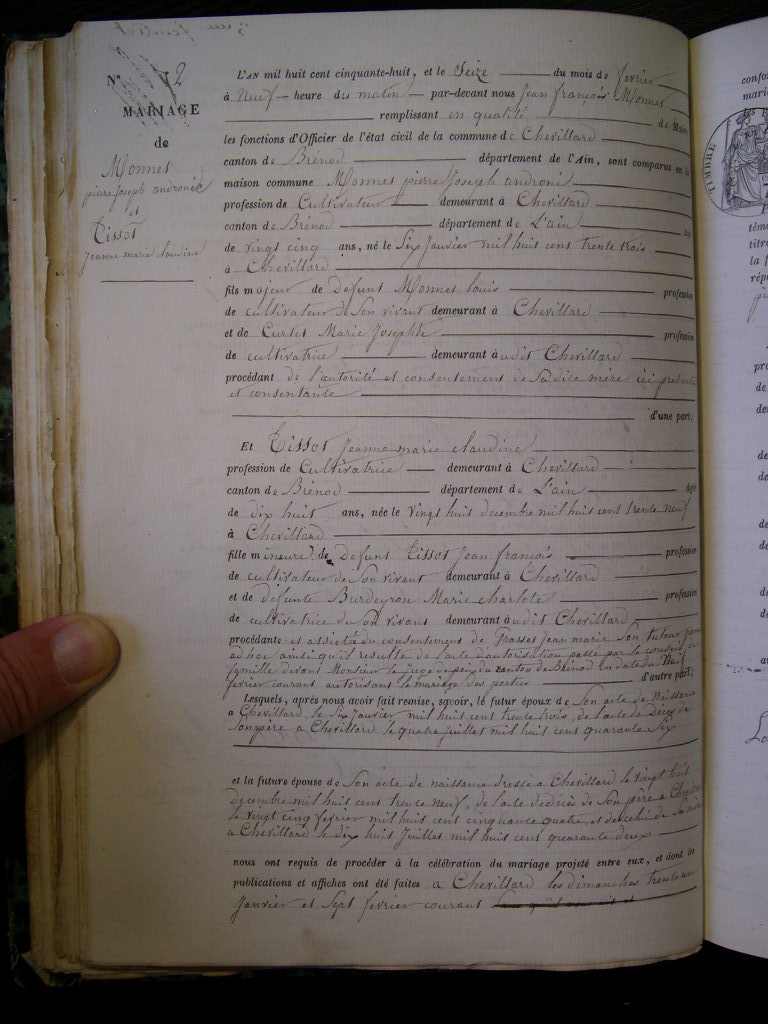 N° 2
MARIAGE
de
Monnet
pierre Joseph androné
et
Tissot
Jeanne marie claudine
L'AN mil huit cent cinquante-huit, et le Seize du mois de fevrier
à Neuf heure du matin par-devant nous Jean françois Monnet
remplissant en qualité de Maire
les fonctions d'Officier de l'état civil de la commune de Chevillard
canton de Brénod département de l'Ain, sont comparus en la
maison commune Monnet pierre Joseph androné
profession de Cultivateur demeurant à Chevillard
canton de Brénod département de L'ain âgé
de vingt cinq ans, né le Six Janvier mil huit cent trente trois
à Chevillard
fils majeur de Defunt Monnet louis profession
de cultivateur de Son vivant demeurant à Chevillard
et de Curtet Marie Josephte profession
de cultivatrice demeurant audit Chevillard
procédant de l'autorité et consentement de Sa dite mère ici presente
et consentante
d'une part;
Et Tissot Jeanne marie claudine
profession de Cultivatrice demeurant à Chevillard
canton de Brénod département de L'ain âgée
de dix huit ans, née le vingt huit decembre mil huit cent trente neuf
à Chevillard
fille mineure de Defunt Tissot Jean françois profession
de cultivateur de Son vivant demeurant à Chevillard
et de défunte Burdeyron Marie charlote profession
de cultivatrice de Son vivant demeurant audit Chevillard
procédante et assistée du consentement de Jean marie Son tuteur
ad hoc ainsi qu'il resulte de l'acte d'autorisation passé par le conseil de
famille devant Monsieur le Juge de paix du canton de Brénod en date du huit
fevrier courant autorisant le mariage des parties d'autre part;
Lesquels, après nous avoir fait remise, savoir, le futur époux de Son acte de Naissance
a Chevillard le Six Janvier mil huit cent trente trois, de l'acte de Décès de
Son père a Chevillard le quatre juillet mil huit cent quarante Six
et la future épouse de Son acte de naissance dressé a Chevillard le vingt huit
decembre mil huit cent trente neuf, de l'acte de décès de Son père a Chevillard
le vingt cinq fevrier mil huit cent cinquante quatre et de celui de Sa mère
a Chevillard le dix huit Juillet mil huit cent quarante deux
nous ont requis de procéder à la célébration du mariage projeté entre eux, et dont les
publications et affiches ont été faites a Chevillard les dimanches trente un
Janvier et Sept fevrier courant
TIMBRE